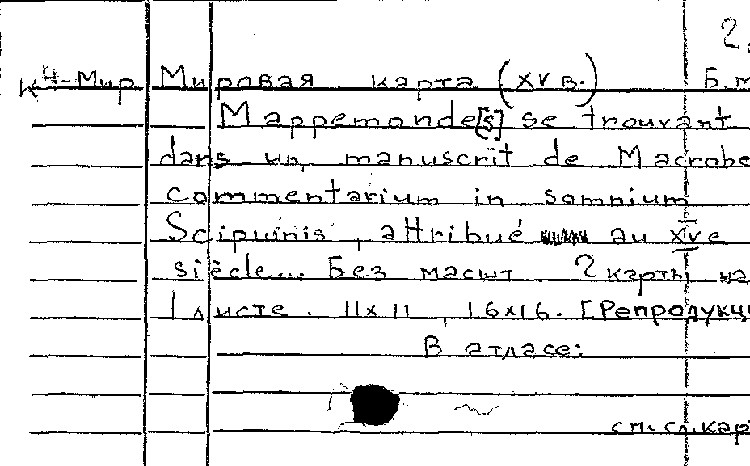 2.
К4-Мир Мировая карта (XV в.) Б.м
Mappemonde[s] se trouvant
dans un manuscrit de Macrobe
commentarium in somnium
Scipuinis, attribué au XVe
siècle... Без масшт. 2 карты на
1 листе. 11x11, 16x16. [Репродукци
В атласе:
см.сл.кар